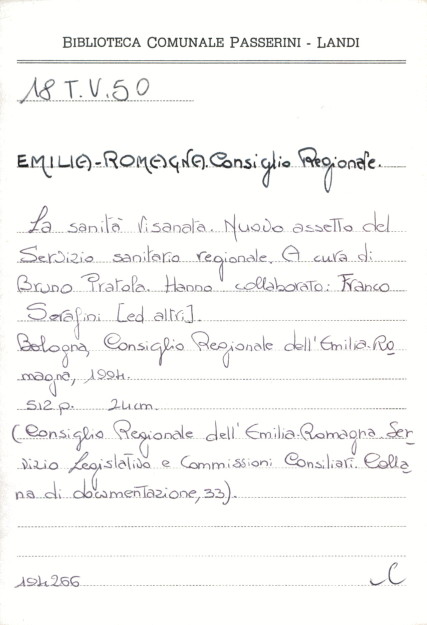 BIBLIOTECA COMUNALE PASSERINI - LANDI
18 T.V.50
EMILIA-ROMAGNA. Consiglio Regionale.
La sanità risanata. Nuovo assetto del
Servizio sanitario regionale. A cura di
Bruno Pratola. Hanno collaborato: Franco
Serafini [ed altri].
Bologna, Consiglio Regionale dell'Emilia-Ro
magna, 1994.
512 p. 24 cm.
(Consiglio Regionale dell'Emilia-Romagna. Ser
vizio Legislativo e Commissioni Consiliari. Colla
na di documentazione, 33).
194266 C